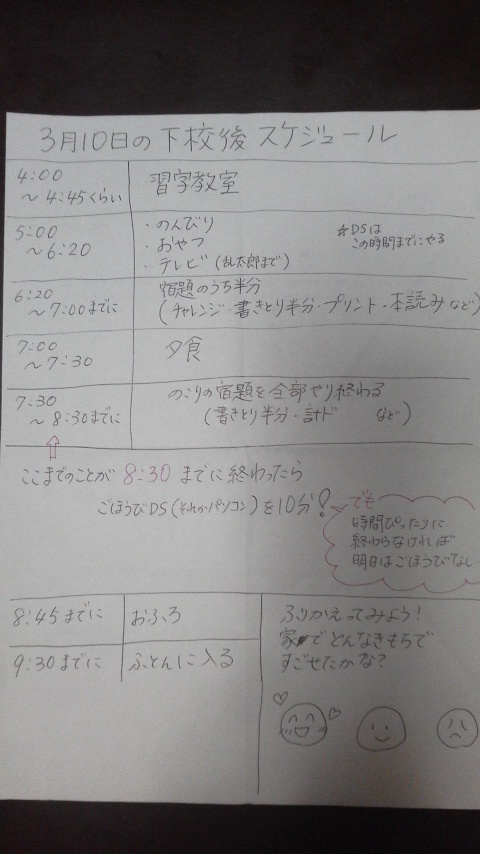 3月10日の下校後スケジュール
4:00
～4:45くらい
習字教室
5:00
～6:20
・のんびり
・おやつ
・テレビ(乱太郎まで)
☆DSは
この時間までにやる
6:20
～7:00までに
宿題のうち半分
(チャレンジ・書きとり半分・プリント・本読みなど)
7:00
～7:30
夕食
7:30
～8:30までに
のこりの宿題を全部やり終わる
(書きとり半分・計ド など)
ここまでのことが8:30までに終わったら
ごほうびDS(それかパソコン)を10分!
でも
時間ぴったりに
終わらなければ
明日はごほうびなし
8:45までに
おふろ
9:30までに
ふとんに入る
ふりかえってみよう!
家でどんなきもちで
すごせたかな?